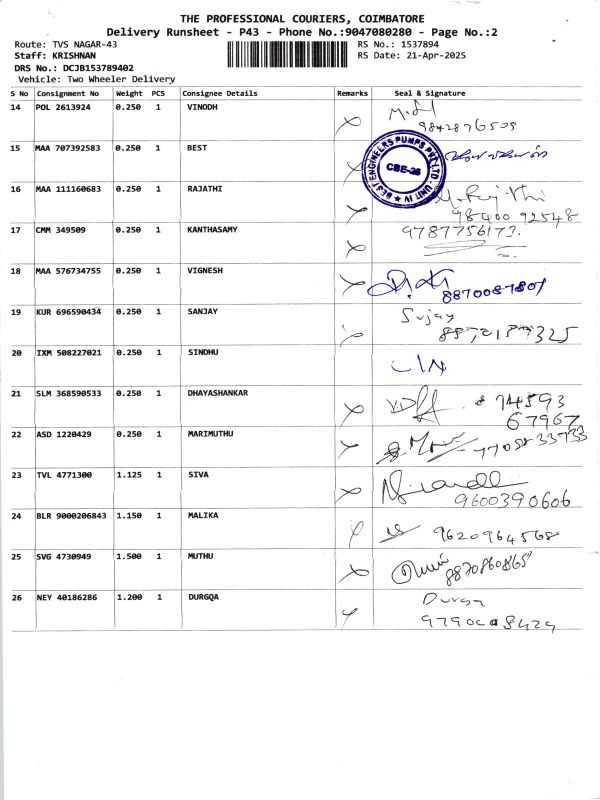 THE PROFESSIONAL COURIERS, COIMBATORE
Delivery Runsheet - P43 - Phone No.:9047080280 - Page No.:2
Route: TVS NAGAR-43 RS No.: 1537894
Staff: KRISHNAN RS Date: 21-Apr-2025
DRS No.: DCJB153789402
Vehicle: Two Wheeler Delivery
S No Consignment No Weight PCS Consignee Details Remarks Seal & Signature
14 POL 2613924 0.250 1 VINODH
9842876509
15 MAA 707392583 0.250 1 BEST
BEST ENGINEERS PUMPS PVT LTD. UNIT IV
CBE-25
16 MAA 111160683 0.250 1 RAJATHI
98400 92548
17 CMM 349509 0.250 1 KANTHASAMY 9787756173.
18 MAA 576734755 0.250 1 VIGNESH
8870087801
19 KUR 696590434 0.250 1 SANJAY Sujay
20 IXM 508227021 0.250 1 SINDHU
21 SLM 368590533 0.250 1 DHAYASHANKAR 74593
67967
22 ASD 1220429 0.250 1 MARIMUTHU
23 TVL 4771300 1.125 1 SIVA
9600390606
24 BLR 9000206843 1.150 1 MALIKA 9620964568
25 SVG 4730949 1.500 1 MUTHU
8870860865
26 NEY 40186286 1.200 1 DURGQA Durga